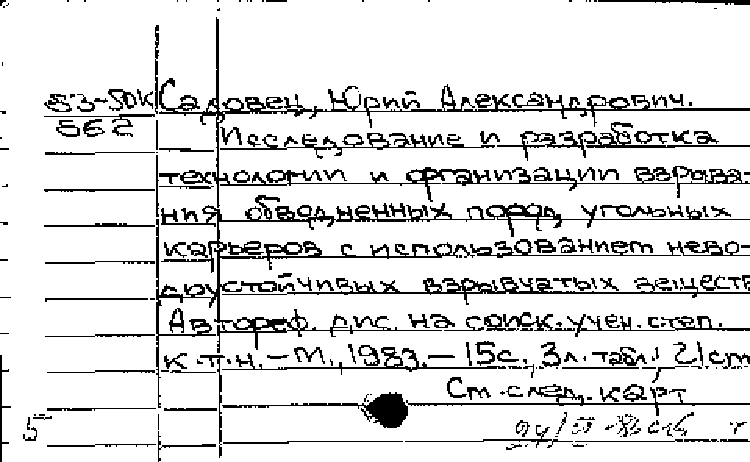 83-50К Садовец, Юрий Александрович.
562 Исследование и разработка
технологии и организации взрыва-
ния обводненных пород угольных
карьеров с использованием нево-
доустойчивых взрывчатых веществ
Автореф. дис. на соиск. учен. степ.
к.т.н. – М., 1983. – 15с., 3л. табл.; 21см
См. след. карт.
5